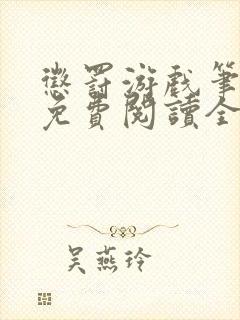 懲罰游戲筆
免費閱讀全
吳燕玲